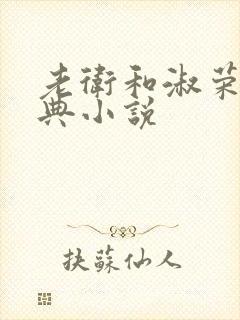 老衛和淑荣
典小説
扶蘇仙人